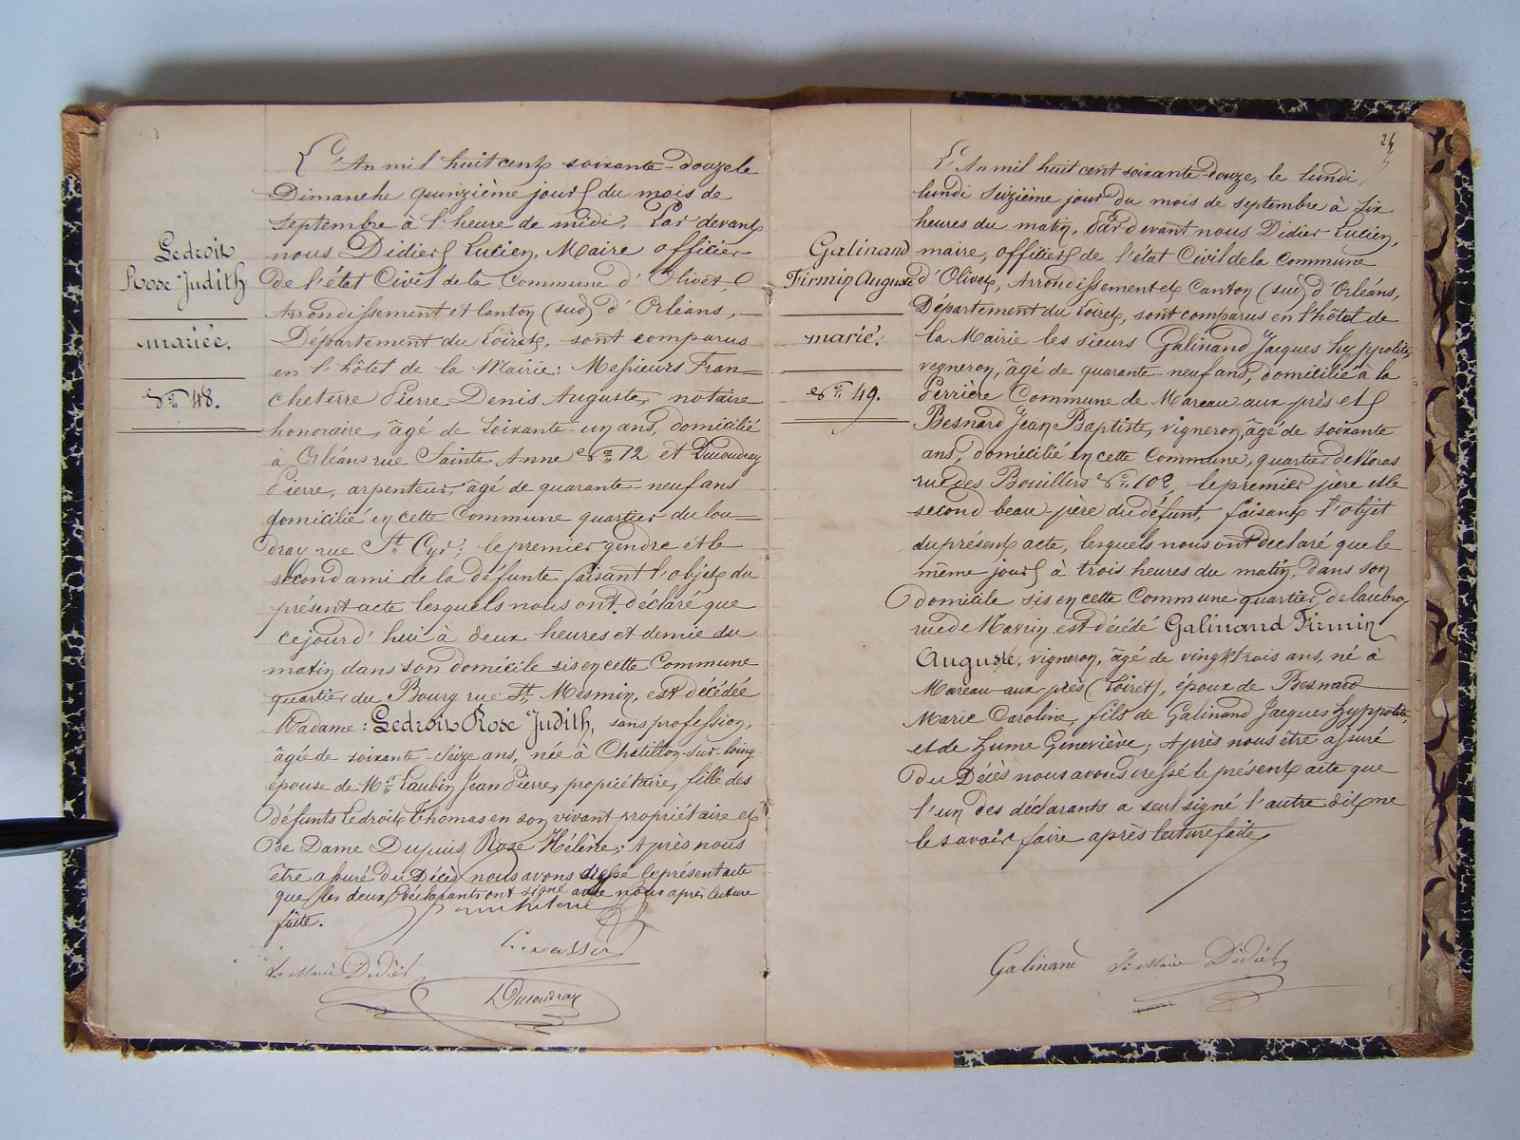 Ledroit
Rose Judith
mariée.
No 48.
L'An mil huit cent soixante-douze le
Dimanche quinzième jour du mois de
septembre à l'heure de midi, Par devant
nous Didier Lucien, Maire officier
de l'état Civil de la Commune d'Olivet,
Arrondissement et Canton (sud) d'Orléans,
Département du Loiret, sont comparus
en l'hôtel de la Mairie: Messieurs Fran=
cheterre Pierre Denis Auguste, notaire
honoraire, âgé de soixante-un ans, domicilié
à Orléans rue Sainte Anne No 12 et Ducoudray
Pierre, arpenteur, âgé de quarante-neuf ans
domicilié en cette Commune quartier du Cou=
dray rue St Cyr; le premier gendre et le
second ami de la défunte faisant l'objet du
présent acte lesquels nous ont déclaré que
cejourd'hui à deux heures et demie du
matin dans son domicile sis en cette Commune
quartier du Bourg rue St Mesmin, est décédée
Madame: Ledroit Rose Judith, sans profession,
âgée de soixante-seize ans, née à Chatillon-sur-Loing
épouse de Mr Laubin Jean Pierre, propriétaire, fille des
défunts Ledroit Thomas en son vivant propriétaire et
de Dame Dupuis Rose Hélène; Après nous
être assuré du Décès nous avons dressé le présent acte
que les deux déclarants ont signé avec nous après lecture
faite.
Le Maire Didier
Ducoudray
24
Galinand
Firmin Auguste
marié.
No 49.
L'An mil huit cent soixante-douze, le lundi
lundi seizième jour du mois de septembre à six
heures du matin, Par devant nous Didier Lucien,
maire, officier de l'état Civil de la Commune
d'Olivet, Arrondissement et Canton (sud) d'Orléans,
Département du Loiret, sont comparus en l'hôtel de
la Mairie les sieurs Galinand Jacques hyppolite,
vigneron, âgé de quarante-neuf ans, domicilié à la
Perrière Commune de Mareau aux près et
Besnard Jean Baptiste, vigneron, âgé de soixante
ans, domicilié en cette Commune, quartier de Noras
rue des Bouillers No 102, le premier père et le
second beau-père du défunt, faisant l'objet
du présent acte, lesquels nous ont declaré que le
même jour à trois heures du matin, dans son
domicile sis en cette Commune quartier de
rue de est décédé Galinand Firmin
Auguste, vigneron, âgé de vingt trois ans, né à
Mareau-aux-près (Loiret), époux de Besnard
Marie Caroline, fils de Galinand Jacques hyppolite,
et de Lume Geneviève; Après nous être assuré
du Décès nous avons dressé le présent acte que
l'un des déclarants a seul signé l'autre dit ne
le savoir faire après lecture faite
Galinand Le Maire Didier